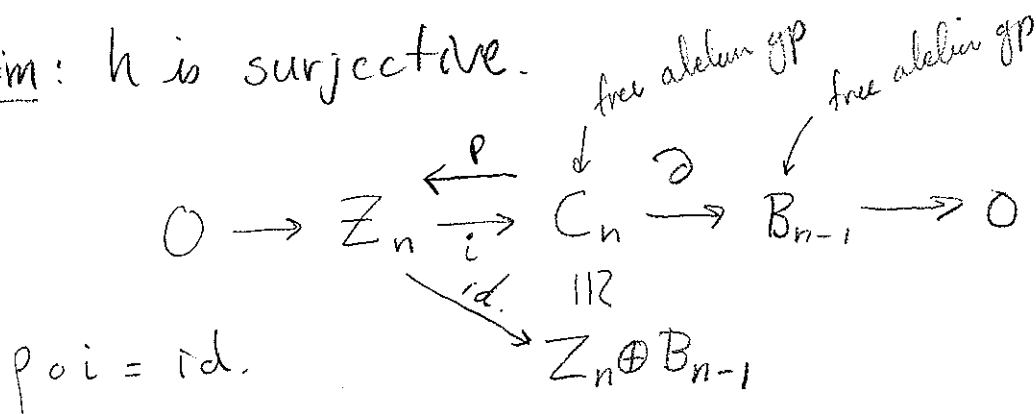 im: h is surjective.
free abelian gp
free abelian gp
0 → Z_n ⇄ C_n → B_{n-1} → 0
p
i
∂
id.
≅
Z_n ⊕ B_{n-1}
p∘i = id.